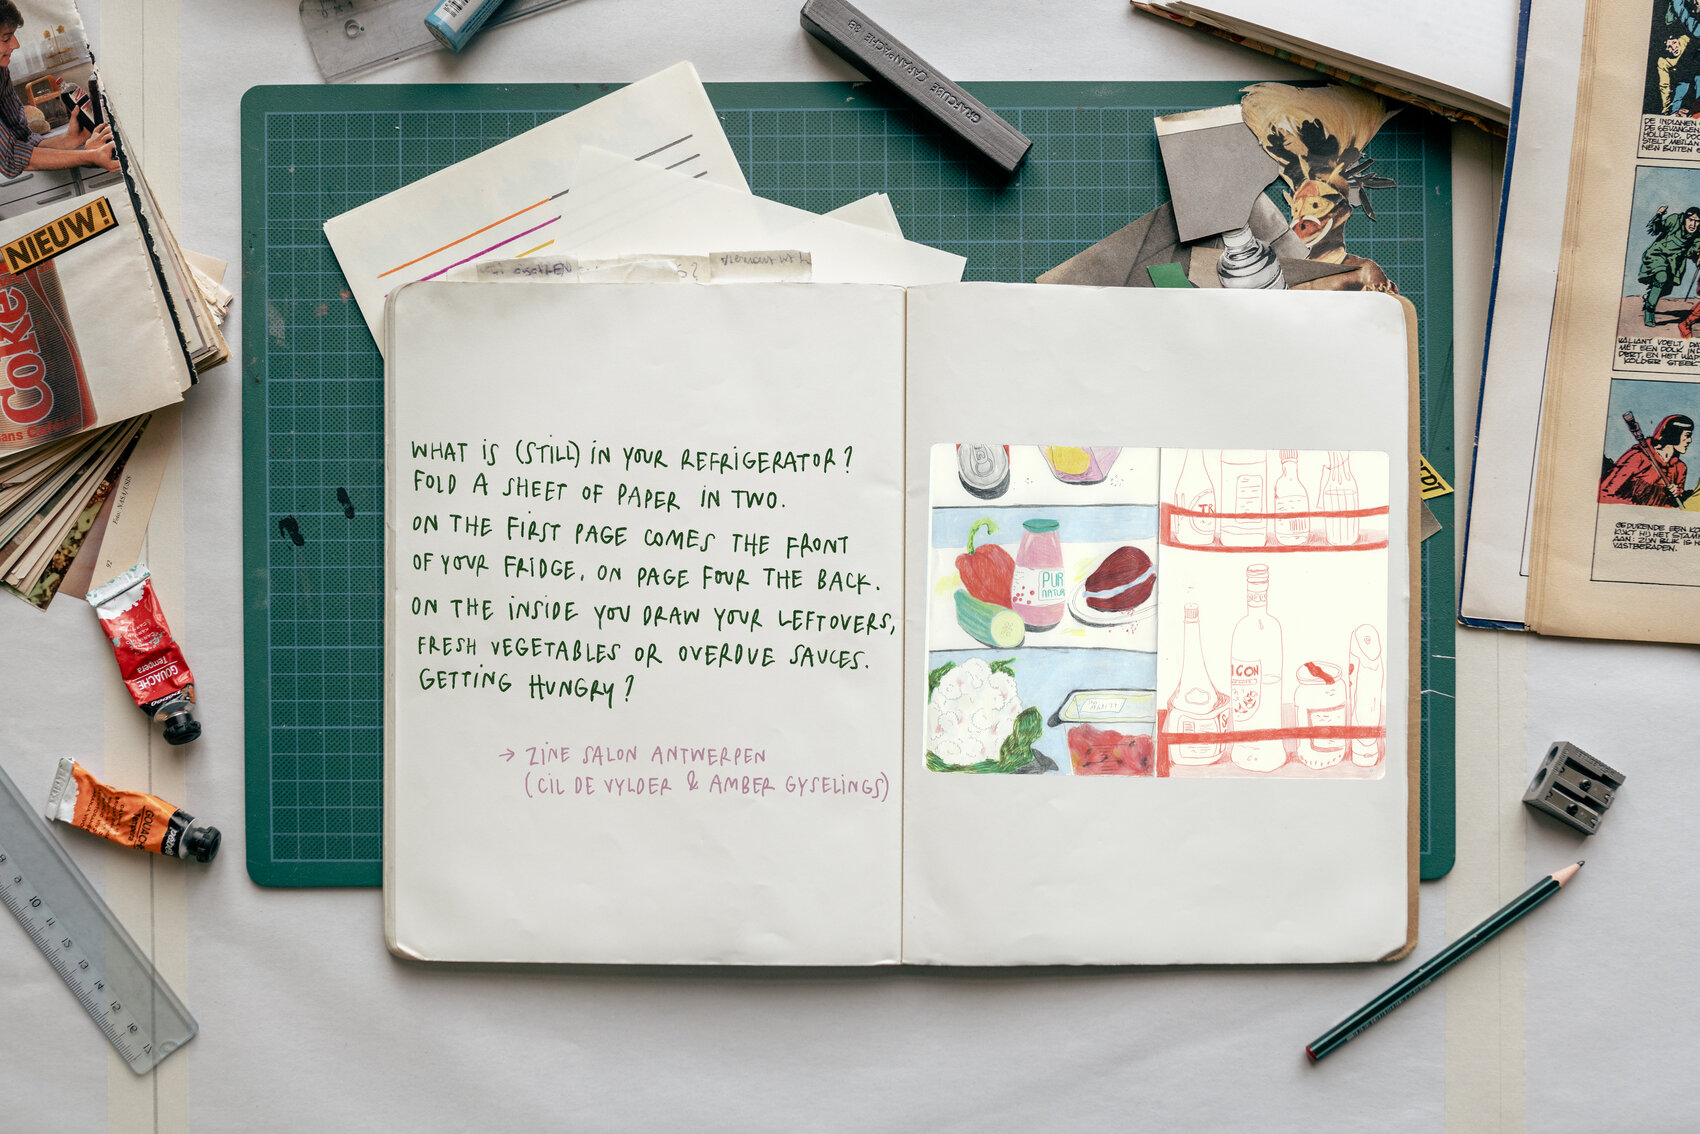 WHAT IS (STILL) IN YOUR REFRIGERATOR?
FOLD A SHEET OF PAPER IN TWO.
ON THE FIRST PAGE COMES THE FRONT
OF YOUR FRIDGE, ON PAGE FOUR THE BACK.
ON THE INSIDE YOU DRAW YOUR LEFTOVERS,
FRESH VEGETABLES OR OVERDUE SAUCES.
GETTING HUNGRY?
→ ZINE SALON ANTWERPEN
(CIL DE VYLDER & AMBER GYSELINGS)
PUR
NATUR
NIEUW!
Coke
Foto: NASA/USIS
92
GRAFCUBE CARAN D'ACHE 8B
GOUACHE
Tempera
GOUACHE
Tempera
9 10 11 12 13 14 15 16 17
DE INDIANEN
DE GEVANGEN
HOLLEND, DOO
STELT MEILAN
NEN BUITEN
VALIANT VOELT, DA
MET EEN DOLK IN
DERT, EN HET WAP
KOLDER STEEK
GEDURENDE EEN KO
KIJKT HIJ HET STAM
AAN: ZIJN BLIK IS N
VASTBERADEN.